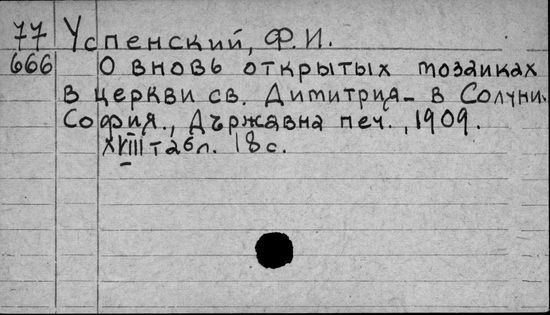 77 Успенский, Ф.И.
666 О вновь открытых мозаиках
в церкви св. Димитрия - в Солуни.
София., Държавна печ., 1909.
XVIII табл. 18 с.